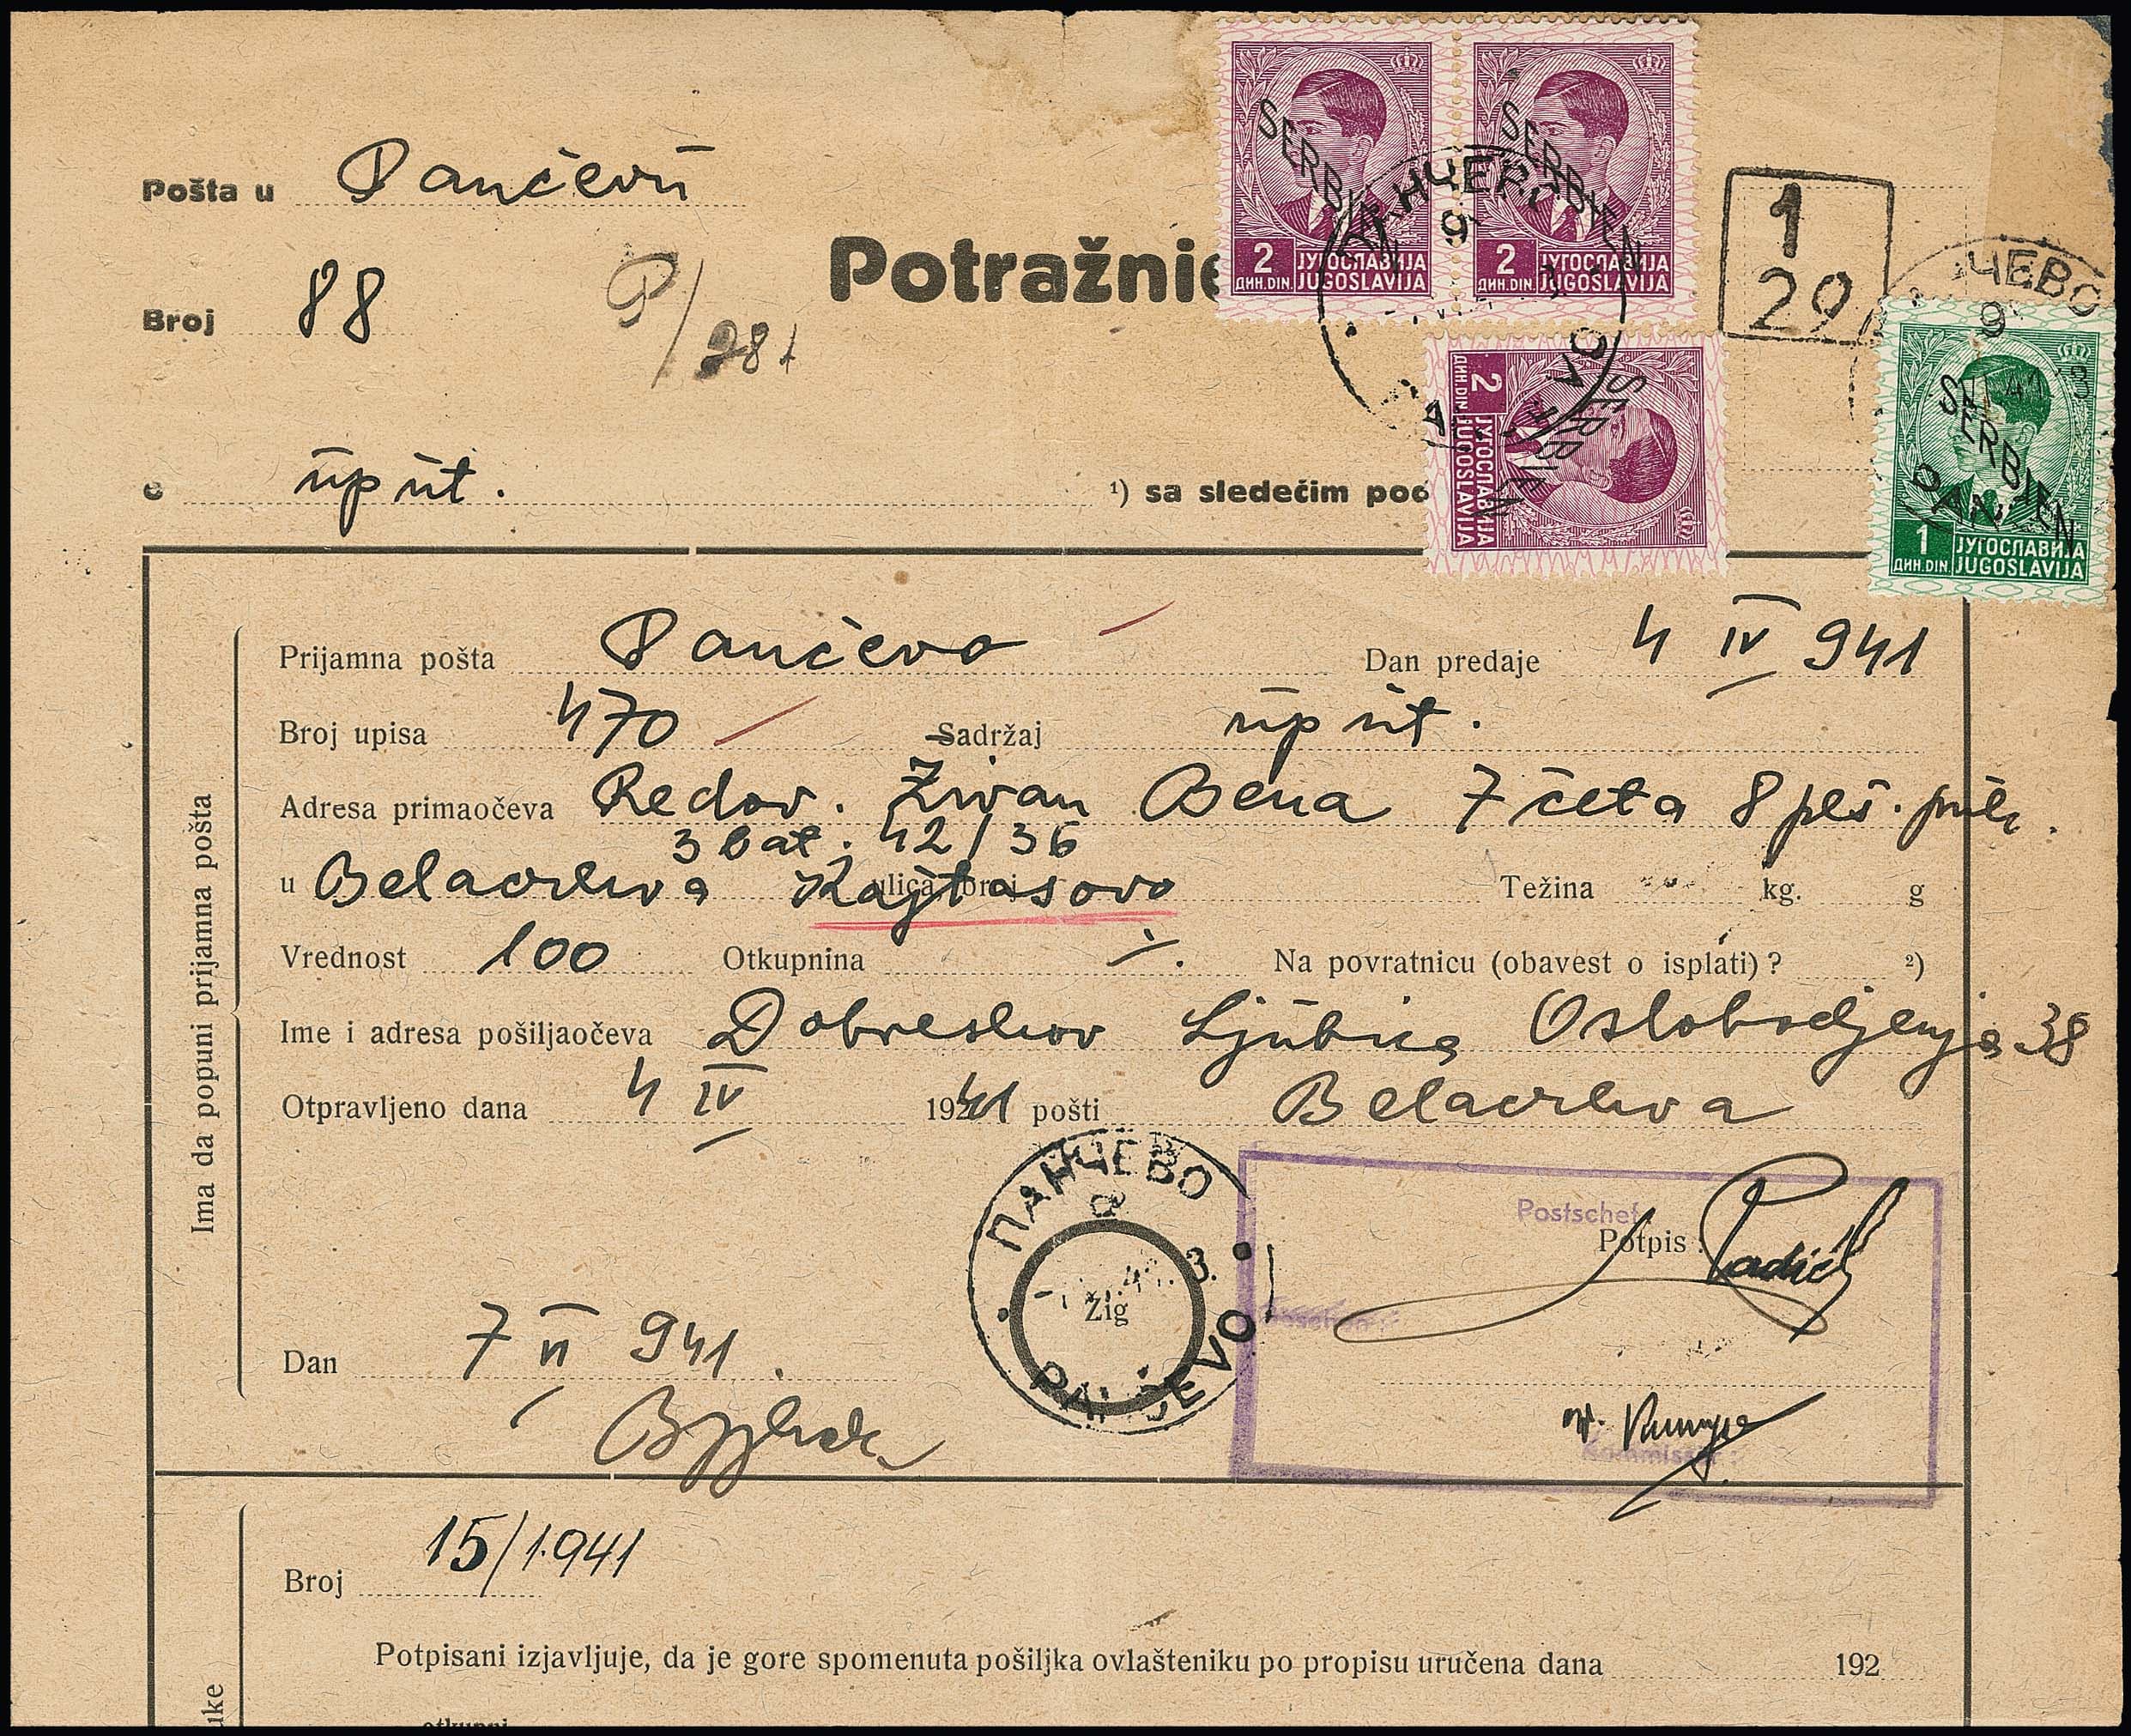 SERBIEN SERBIEN
2 ЈУГОСЛАВИЈА 2 ЈУГОСЛАВИЈА
ДИН.DIN. JUGOSLAVIJA ДИН.DIN. JUGOSLAVIJA
Pošta u Pančevu
1
29
Potražnic
Broj 88 P/281
ЧЕВО
9
SERBIEN
2 ЈУГОСЛАВИЈА
ДИН.DIN. JUGOSLAVIJA
SERBIEN
1 ЈУГОСЛАВИЈА
ДИН.DIN. JUGOSLAVIJA
o uput. ¹) sa sledećim pod
Ima da popuni prijamna pošta
Prijamna pošta Pančevo Dan predaje 4 IV 941
Broj upisa 470 Sadržaj uput.
Adresa primaočeva Redov. Živan Bena 7 četa 8 peš.
3 bat. 42/36
u Belacrkva ulica broj Kajtasovo Težina kg. g
Vrednost 100 Otkupnina Na povratnicu (obavest o isplati)? ²)
Ime i adresa pošiljaočeva Dobreskov Ljubica Oslobodjenja 38
Otpravljeno dana 4 IV 1941 pošti Belacrkva
ПАНЧЕВО
Postschef
Potpis:
Žig
PANČEVO
Dan 7 VI 941.
Kommissar
Broj 15/1941
Potpisani izjavljuje, da je gore spomenuta pošiljka ovlašteniku po propisu uručena dana 192
uke
otkupni